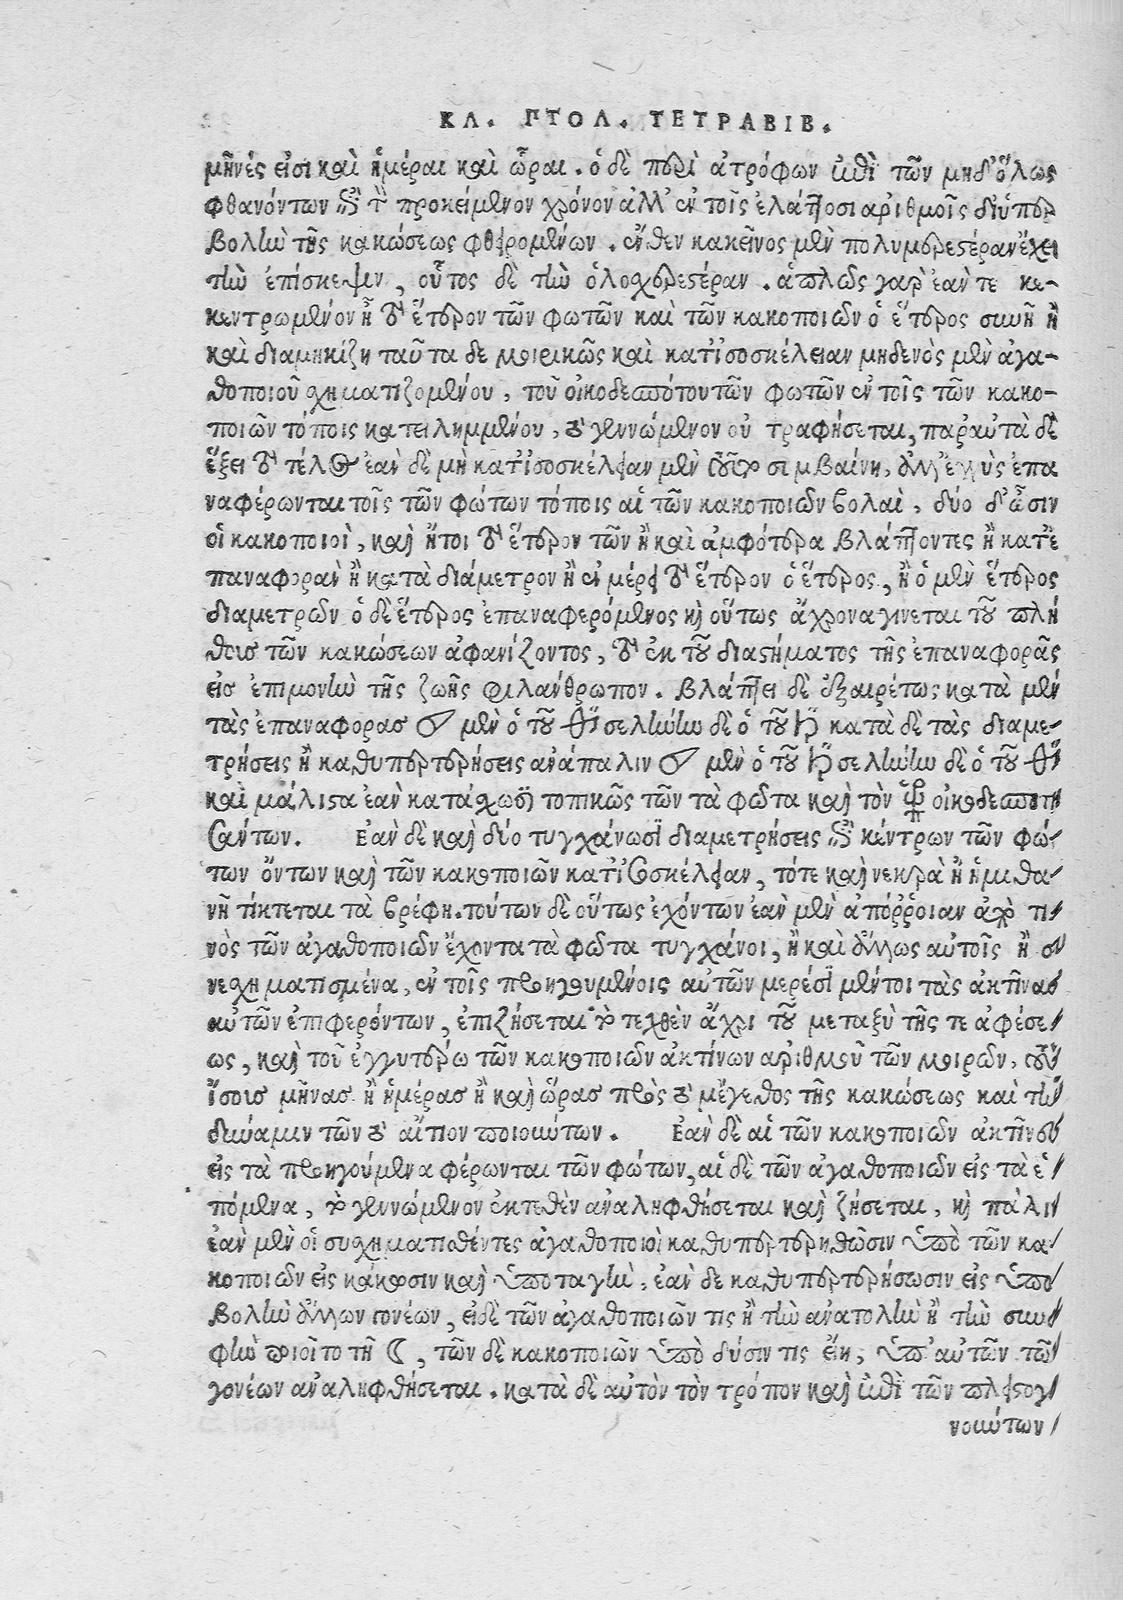 ΚΛ. ΠΤΟΛ. ΤΕΤΡΑΒΙΒ.
μῆνές εἰσι καὶ ἡμέραι καὶ ὧραι. ὁ δὲ περὶ ἀτρόφων ἐπὶ τῶν μηδ' ὅλως
φθανόντων ἐς τὸ προκείμενον χρόνον ἀλλ' ἐν τοῖς ἐλάττοσι ἀριθμοῖς δι' ὑπερ
βολὴν τῆς κακώσεως φθειρομένων. ἔνθεν κακεῖνος μὲν πολυμερεστέραν ἔχει
τὴν ἐπίσκεψιν, οὗτος δὲ τὴν ὁλοχερεστέραν. ἁπλῶς γὰρ ἐάν τε κε-
κεντρωμένον ᾖ τὸ ἕτερον τῶν φωτῶν καὶ τῶν κακοποιῶν ὁ ἕτερος συνῇ ἢ
καὶ διαμηκίζῃ ταῦτα δε μοιρικῶς καὶ κατ' ἰσοσκέλειαν μηδενὸς μὲν ἀγα-
θοποιοῦ χηματιζομένου, τοῦ οἰκοδεσπότου τῶν φωτῶν ἐν τοῖς τῶν κακο-
ποιῶν τόποις κατειλημμένου, τὸ γεννώμενον οὐ τραφήσεται, παραυτὰ δὲ
ἕξει τὸ τέλος ἐὰν δὲ μὴ κατ' ἰσοσκέλειαν μὲν τοῦτο συμβαίνῃ, ἀλλ' ἐγγὺς ἐπα
ναφέρωνται τοῖς τῶν φώτων τόποις αἱ τῶν κακοποιῶν βολαὶ, δύο δ' ὦσιν
οἱ κακοποιοὶ, καὶ ἤτοι τὸ ἕτερον τῶν ἢ καὶ ἀμφότερα βλάπτοντες ἢ κατ' ἐ
παναφορὰν ἢ κατὰ διάμετρον ἢ ἐν μέρει τὸ ἕτερον ὁ ἕτερος, ἢ ὁ μὲν ἕτερος
διαμετρῶν ὁ δὲ ἕτερος ἐπαναφερόμενος καὶ οὕτως ἄχρονα γίνεται τοῦ πλή
θοις τῶν κακώσεων ἀφανίζοντος, τὸ ἐκ τοῦ διαστήματος τῆς ἐπαναφορᾶς
εἰς ἐπιμονὴν τῆς ζωῆς φιλάνθρωπον. Βλάπτει δὲ ἐξαιρέτως κατὰ μὲν
τὰς ἐπαναφορας ☌ μὲν ὁ τοῦ ♂ σελήνην δὲ ὁ τοῦ ♄ κατὰ δὲ τὰς διαμε-
τρήσεις ἢ καθυπερτερήσεις ἀνάπαλιν ☌ μὲν ὁ τοῦ ♄ σελήνην δὲ ὁ τοῦ ♂
καὶ μάλιστα ἐὰν κατάσχωσι τοπικῶς τῶν τὰ φῶτα καὶ τὸν οἰκοδεσποτη
σάντων. Ἐὰν δὲ καὶ δύο τυγχάνωσι διαμετρήσεις ἐπὶ κέντρων τῶν φώ-
των ὄντων καὶ τῶν κακοποιῶν κατ' ἰσοσκέλειαν, τότε καὶ νεκρὰ ἢ ἡμιθα-
νῆ τίκτεται τὰ βρέφη. τούτων δὲ οὕτως ἐχόντων ἐὰν μὲν ἀπόῤῥοιαν ἀπό τι
νὸς τῶν ἀγαθοποιῶν ἔχοντα τὰ φῶτα τυγχάνοι, ἢ καὶ ἄλλως αὐτοῖς ἢ συ
νεχηματισμένα, ἐν τοῖς προηγουμένοις αὐτῶν μερέσι μέντοι τὰς ἀκτῖνας
αὐτῶν ἐπιφερόντων, ἐπιζήσεται τὸ τεχθὲν ἄχρι τοῦ μεταξὺ τῆς τε ἀφέσε-
ως, καὶ τοῦ ἐγγυτέρω τῶν κακοποιῶν ἀκτίνων ἀριθμοῦ τῶν μοιρῶν, τοὺς
ἴσοις μῆνας ἢ ἡμέρας ἢ καὶ ὥρας πρὸς τὸ μέγεθος τῆς κακώσεως καὶ τὴν
δύναμιν τῶν τὸ αἴτιον ποιούντων. Ἐὰν δὲ αἱ τῶν κακοποιῶν ἀκτῖνες
εἰς τὰ προηγούμενα φέρωνται τῶν φώτων, αἱ δὲ τῶν ἀγαθοποιῶν εἰς τὰ ἑ
πόμενα, τὸ γεννώμενον ἐκτεθὲν ἀναληφθήσεται καὶ ζήσεται, καὶ πάλιν
ἐὰν μὲν οἱ συχηματισθέντες ἀγαθοποιοὶ καθυπερτερηθῶσιν ὑπὸ τῶν κα-
κοποιῶν εἰς κάκωσιν καὶ ὑποταγὴν, ἐὰν δε καθυπερτερήσωσιν εἰς ὑπο
βολὴν ἄλλων γονέων, εἰ δὲ τῶν ἀγαθοποιῶν τις ἢ τὴν ἀνατολὴν ἢ τὴν συνα
φὴν ποιοῖτο τῇ ☾, τῶν δὲ κακοποιῶν ὑπὸ δύσιν τις εἴη, ὑπ' αὐτῶν τῶν
γονέων ἀναληφθήσεται. κατὰ δὲ αὐτὸν τὸν τρόπον καὶ ἐπὶ τῶν πλειστογο
νούντων